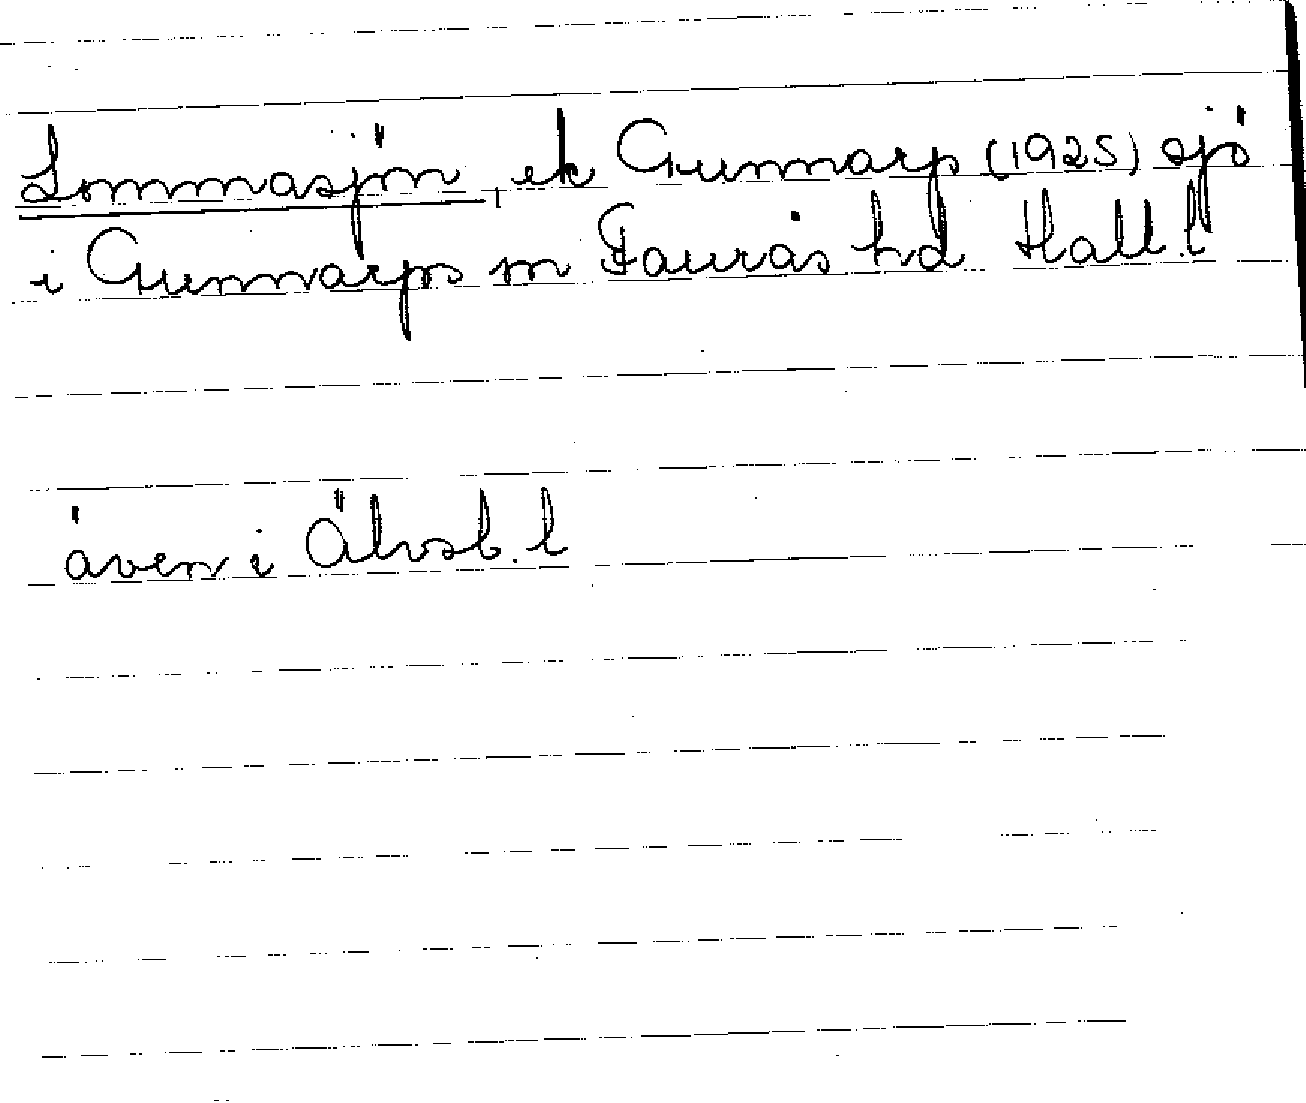 Lommasjön, ek Gunnarp (1925) sjö
i Gunnarps sn Faurås hd Hall. l
även i Älvsb. l